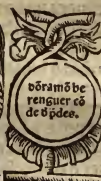 dōramō be
renguer cō
de ꝺ ꝓdes.